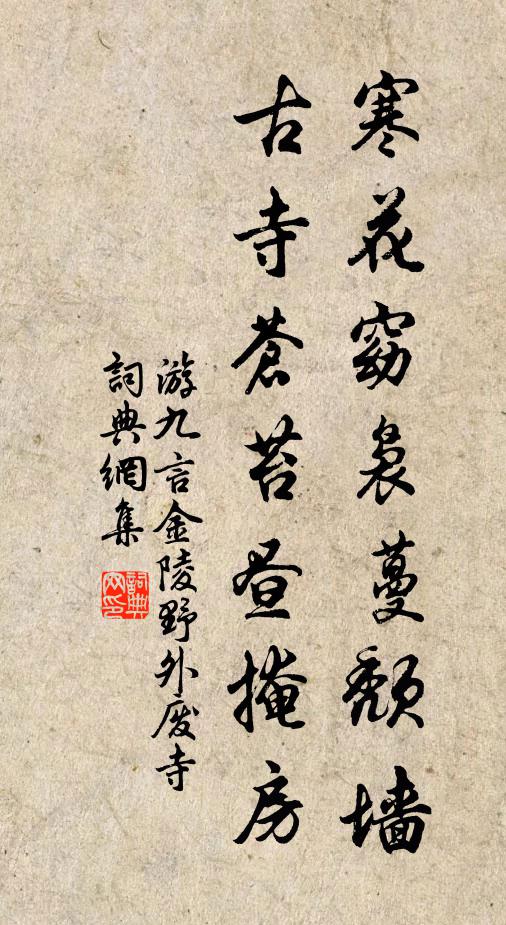 寒花窈袅蔓颓墙
古寺苍苔昼掩房
游九言金陵野外废寺
詞典網集
詞典網印